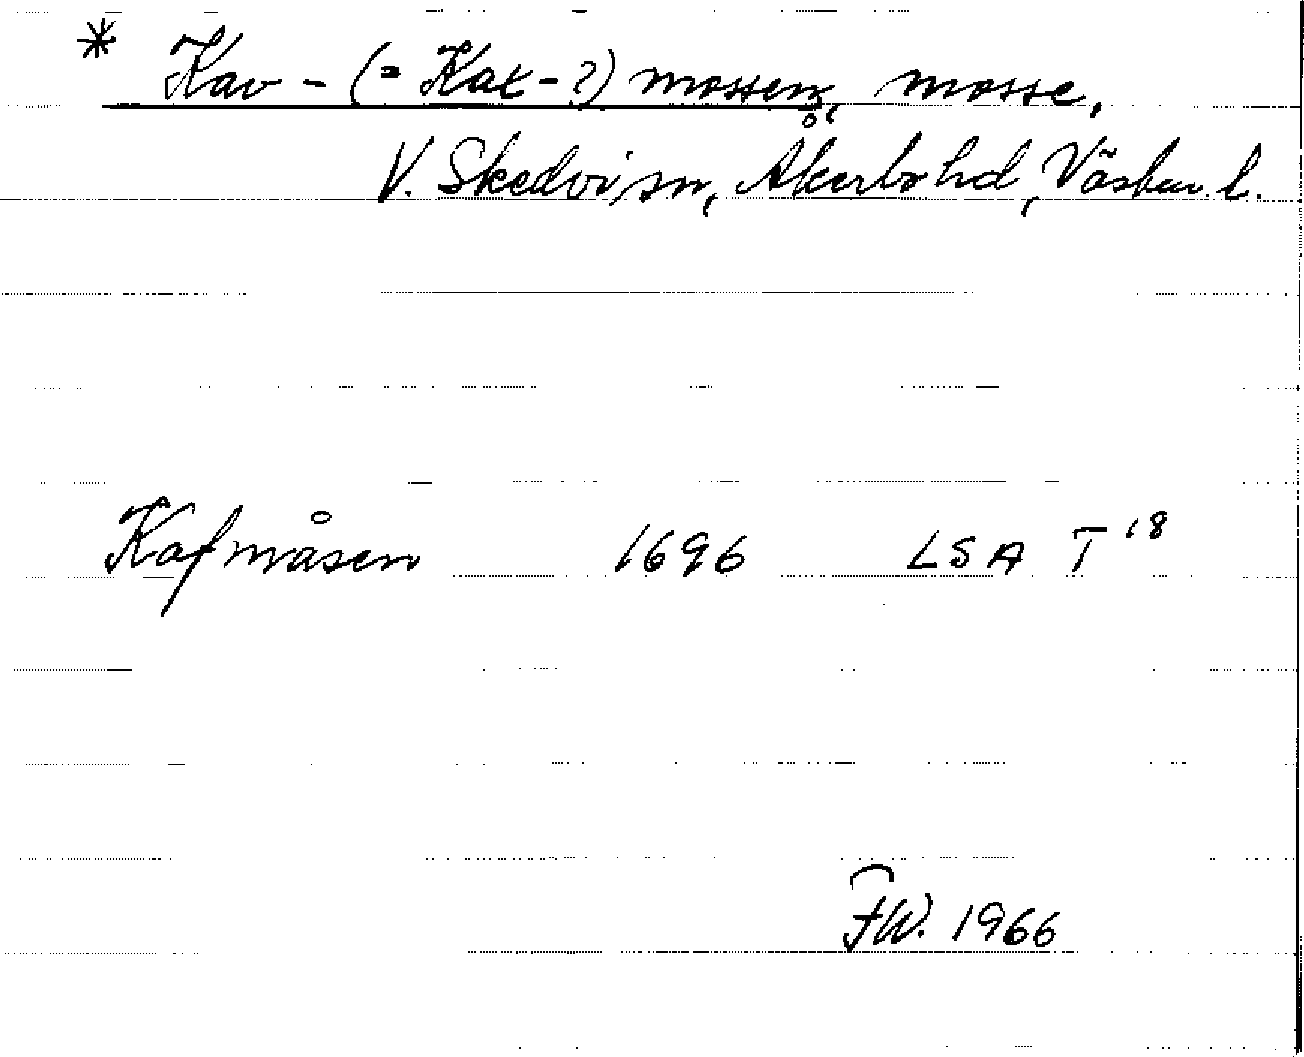 * Kav- (= Kat-?) mossen, mosse,
V. Skedvi sn, Åkerbo hd, Västm. l.
Kafmåsen 1696 LSA T 18
FW. 1966